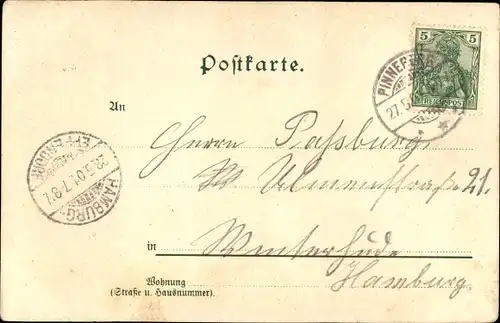 5
REICHSPOST
Postkarte.
PINNEBERG
27.5.
An
Herrn Paßburg
Ulmenstraße 21.
HAMBURG-
EPPENDORF
28.5.01.7-8V.
in
Winterhude
Hamburg.
Wohnung
(Straße u. Hausnummer).